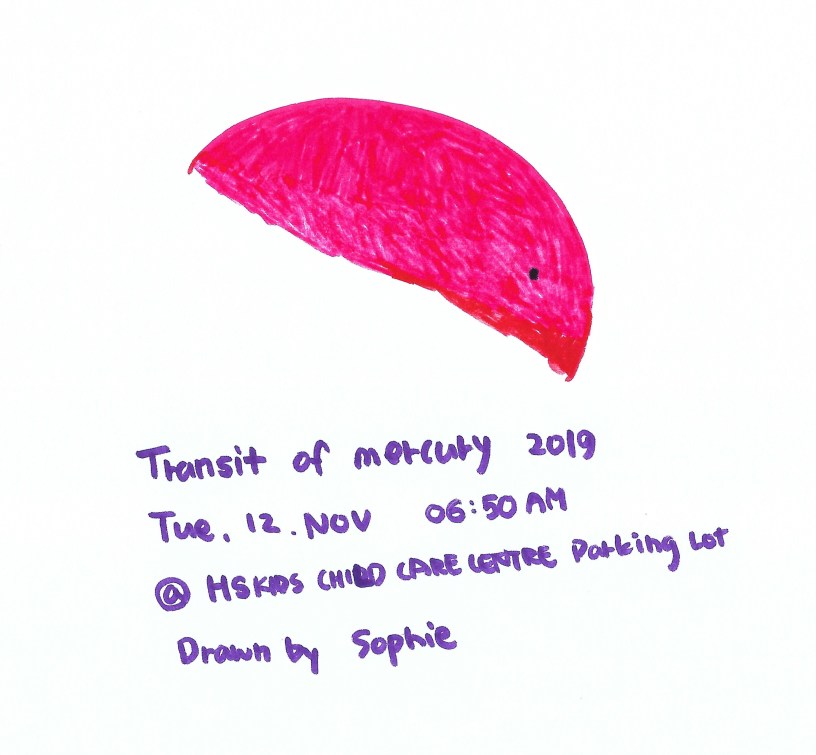 Transit of mercury 2019
Tue. 12. NOV 06:50 AM
@ HSKIDS CHILD CARE CENTRE Parking Lot
Drawn by Sophie